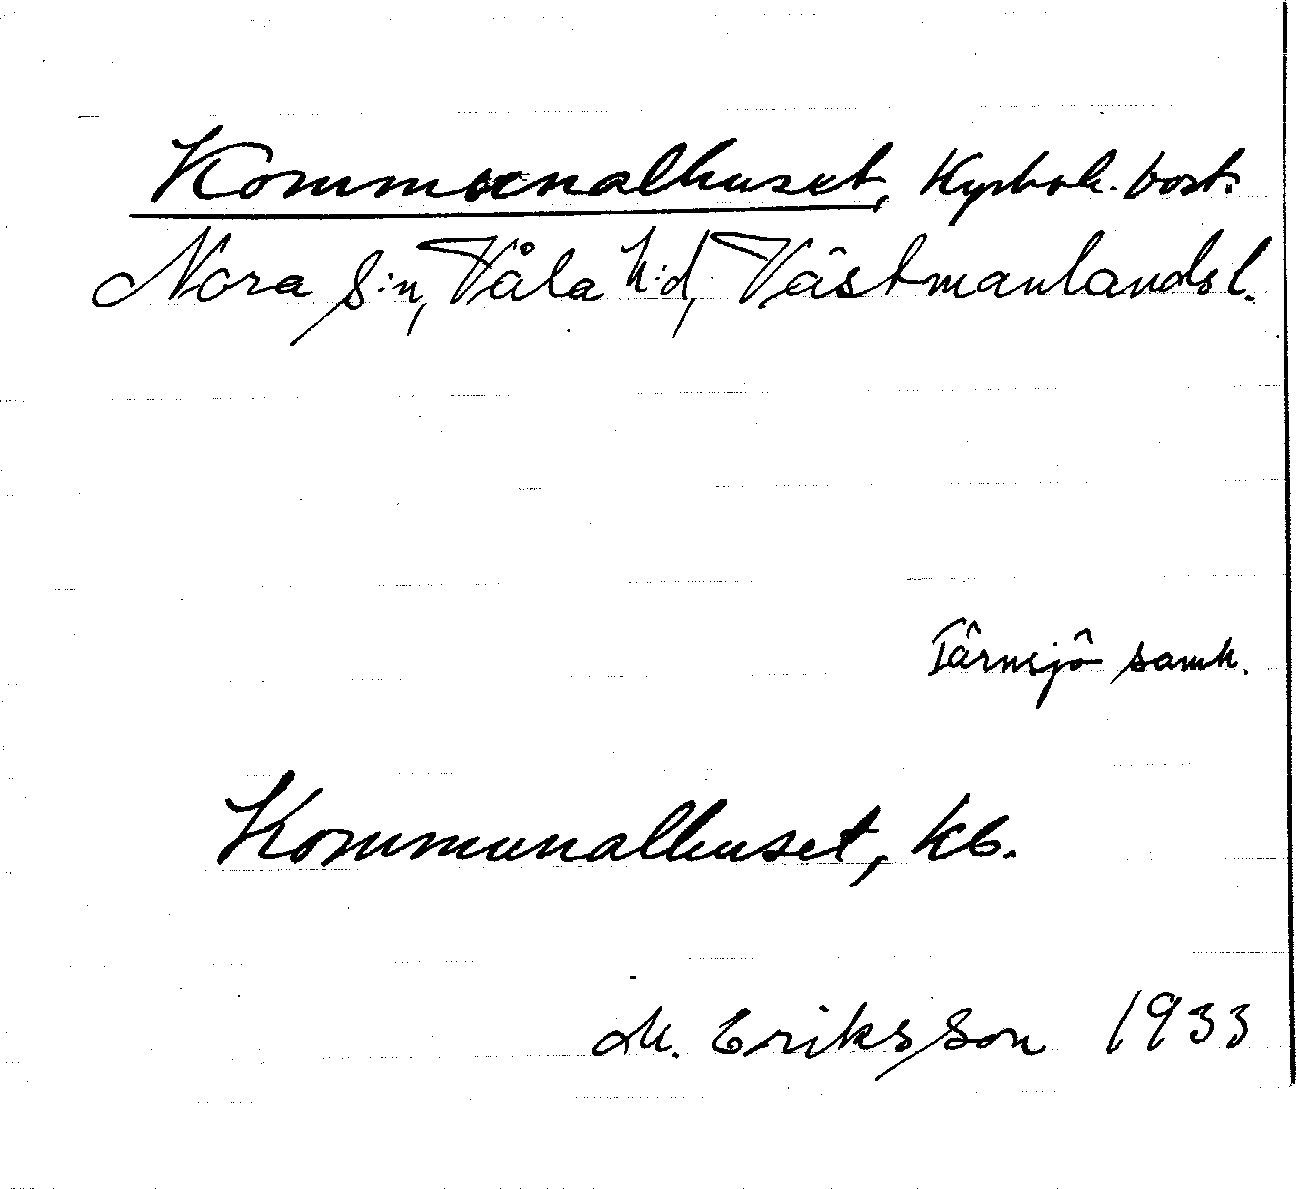 Kommunalhuset, Kyrkoh. bost.
Nora s:n, Våla h:d, Västmanlands l.
Tärnsjö samh.
Kommunalhuset, kb.
M. Eriksson 1933